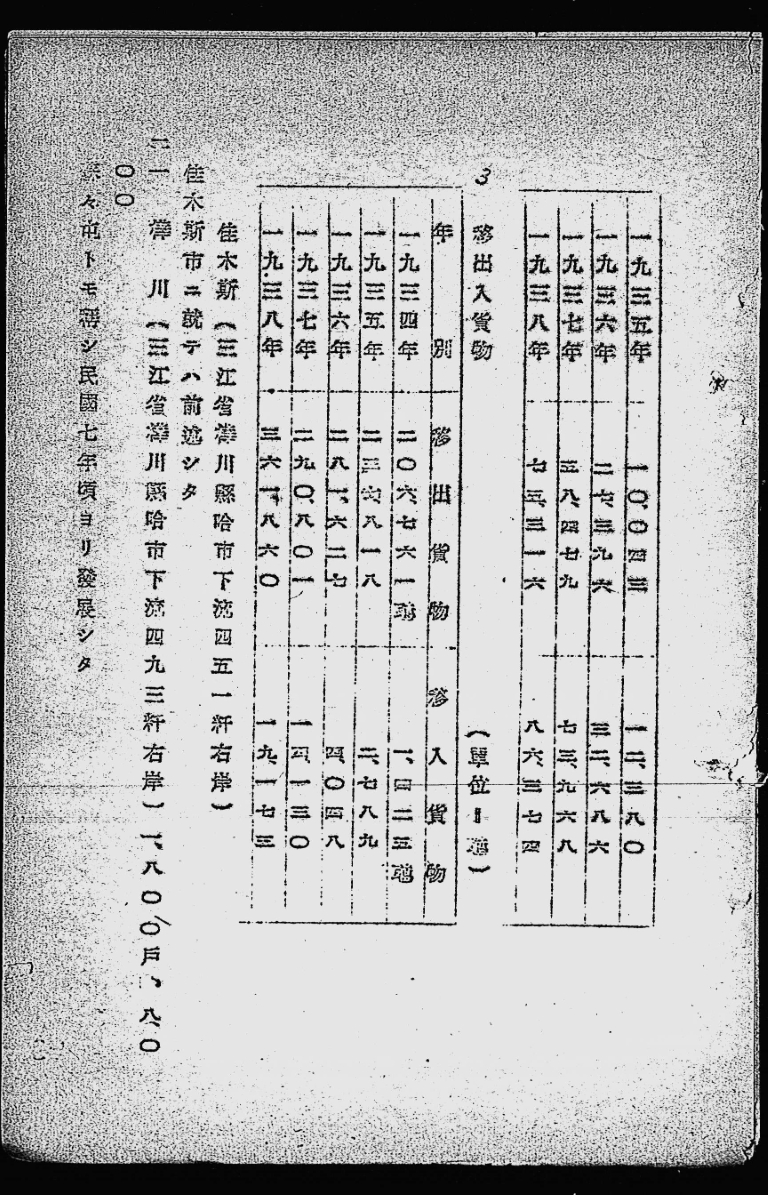 一九三五年 一〇、〇四三 一二、三八〇
一九三六年 二七、三九六 三二、六八六
一九三七年 五八、四七九 七三、九六八
一九三八年 七三、三一六 八六、三七四
3 移出入貨物 (單位=瓲)
年別 移出貨物 移入貨物
一九三四年 二〇六、七六一瓲 一、四二三瓲
一九三五年 二三六、八一八 二、七八九
一九三六年 二八一、六二七 四、〇四八
一九三七年 二九〇、八〇一 一四、一三〇
一九三八年 三六一、八六〇 一九、一七三
佳木斯(三江省樺川縣哈市下流四五一粁右岸)
佳木斯市ニ就テハ前述シタ
二一 樺川(三江省樺川縣哈市下流四九三粁右岸)一、八〇〇戸、八、〇
〇〇
々屯トモ稱シ民國七年頃ヨリ發展シタ